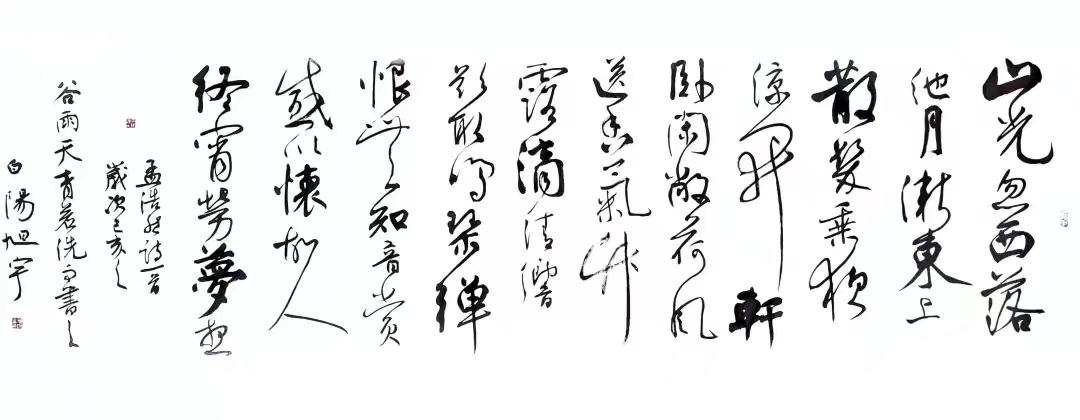 山光忽西落
池月漸東上
散髮乘夜
涼開軒
臥閑敞荷風
送香氣竹
露滴清響
欲取鳴琴彈
恨無知音賞
感此懷故人
終宵勞夢想
孟浩然詩一首
歲次己亥之
谷雨天青若洗而書之
白陽旭宇